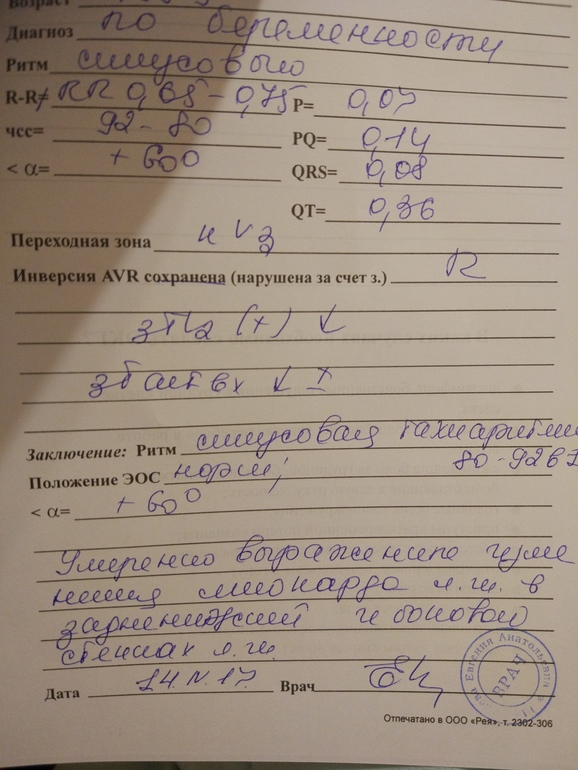 Возраст
Диагноз по беременности
Ритм синусовый
R-R= RR 0,65 - 0,75 P= 0,07
чсс= 92 - 80 PQ= 0,14
< α= + 60° QRS= 0,08
QT= 0,36
Переходная зона к V3
Инверсия AVR сохранена (нарушена за счет з.) R
Заключение: Ритм синусовая тахиаритмия
80-92 в 1
Положение ЭОС норм;
< α= + 60°
Умеренно выраженные изме
нения миокарда л.ж. в
заднениж и боковой
стенках л.ж.
Дата 14.IV.17. Врач
Евгения Анатольевна
ВРАЧ
Отпечатано в ООО «Рея», т. 2302-306